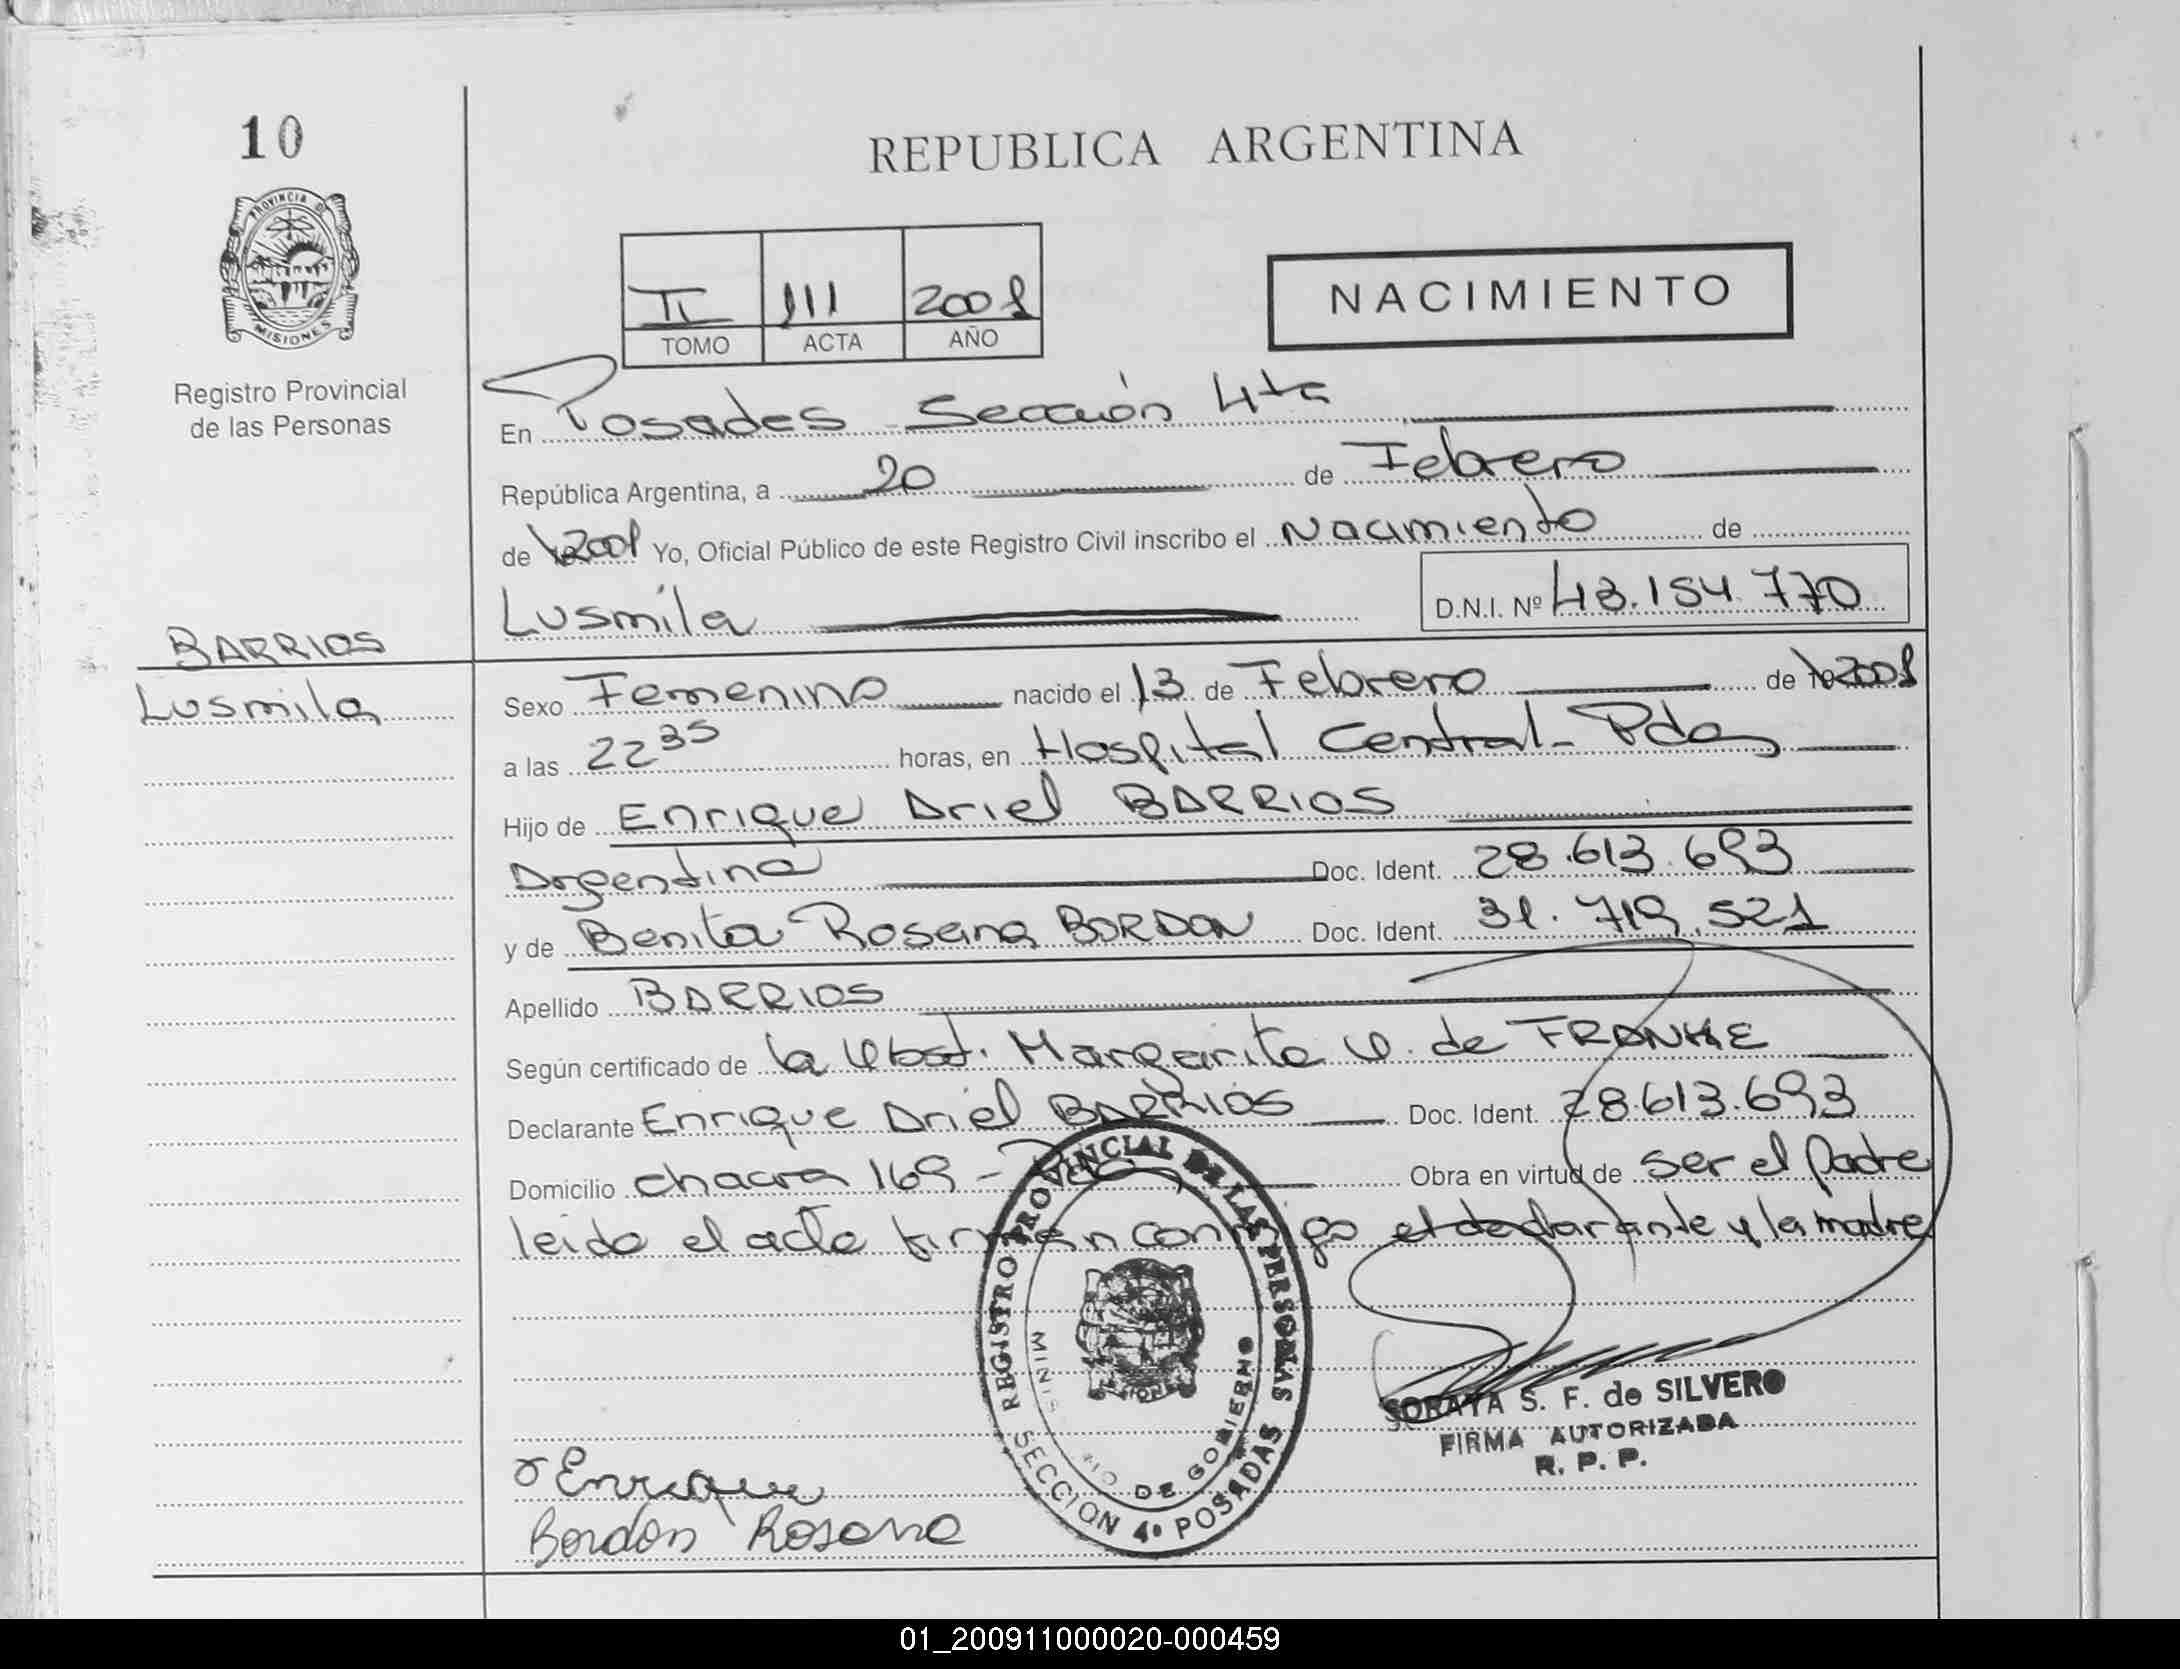 10
REPUBLICA ARGENTINA
PROVINCIA DE
MISIONES
Registro Provincial
de las Personas
II 111 2001
TOMO ACTA AÑO
NACIMIENTO
En Posadas Sección 4ta
República Argentina, a 20 de Febrero
de 2001 Yo, Oficial Público de este Registro Civil inscribo el Nacimiento de
Lusmila D.N.I. Nº 43.154.770
BARRIOS
Lusmila
Sexo Femenino nacido el 13 de Febrero de 2001
a las 22 35 horas, en Hospital Central - Pdas
Hijo de Enrique Ariel BARRIOS
Argentina Doc. Ident. 28.613.693
y de Benita Rosana BORDON Doc. Ident. 31.719.521
Apellido BARRIOS
Según certificado de la Obst. Margarita O. de FRANKE
Declarante Enrique Ariel BARRIOS Doc. Ident. 28.613.693
Domicilio chacra 169 - Obra en virtud de ser el Padre
leido el acta firman conmigo el declarante y la madre
REGISTRO PROVINCIAL DE LAS PERSONAS
MINISTERIO DE GOBIERNO
SECCION 4º POSADAS
SORAYA S. F. de SILVERO
FIRMA AUTORIZADA
R. P. P.
Enrique
Bordón Rosana
01_200911000020-000459